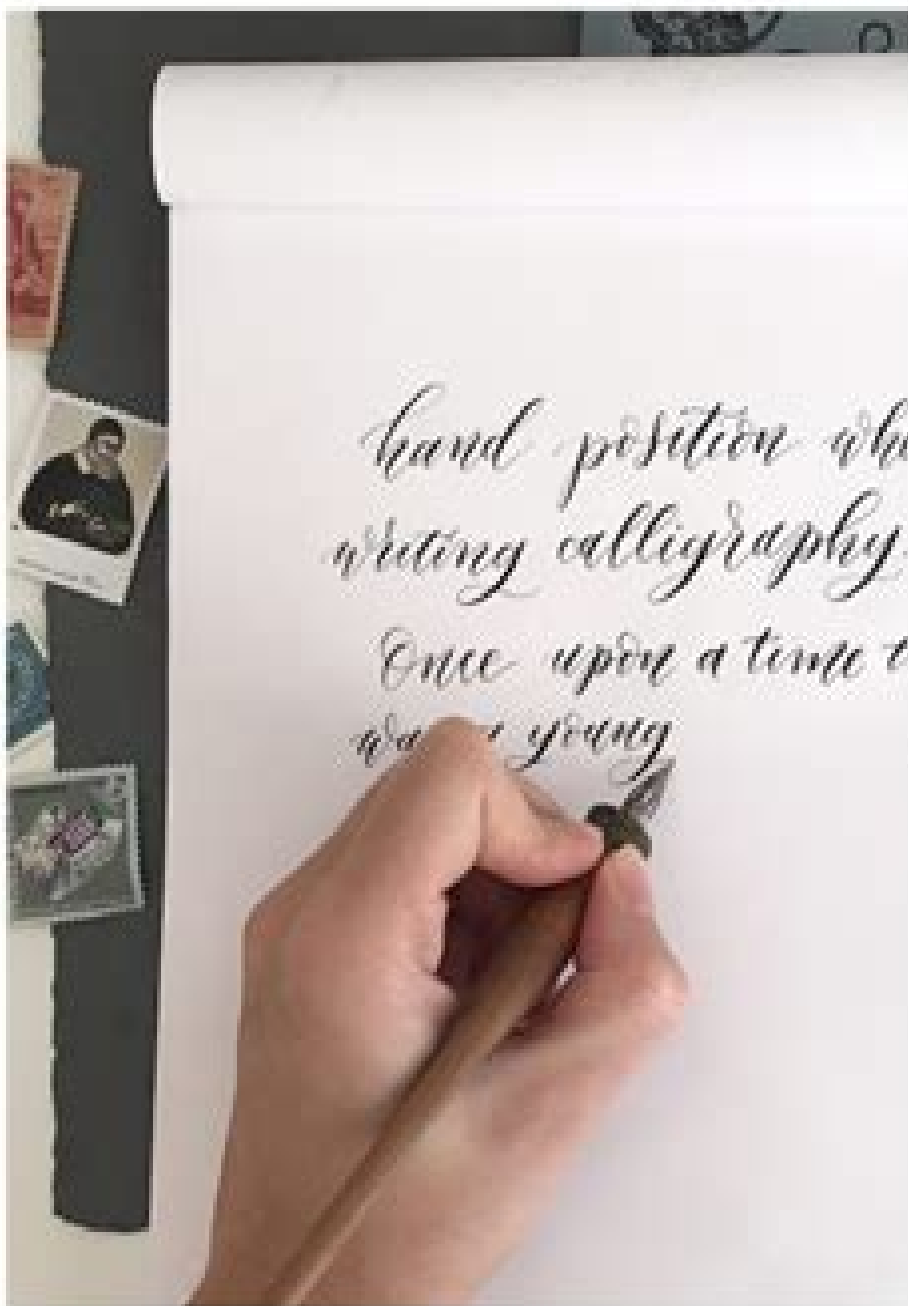 hand position
writing calligraphy.
Once upon a time
young